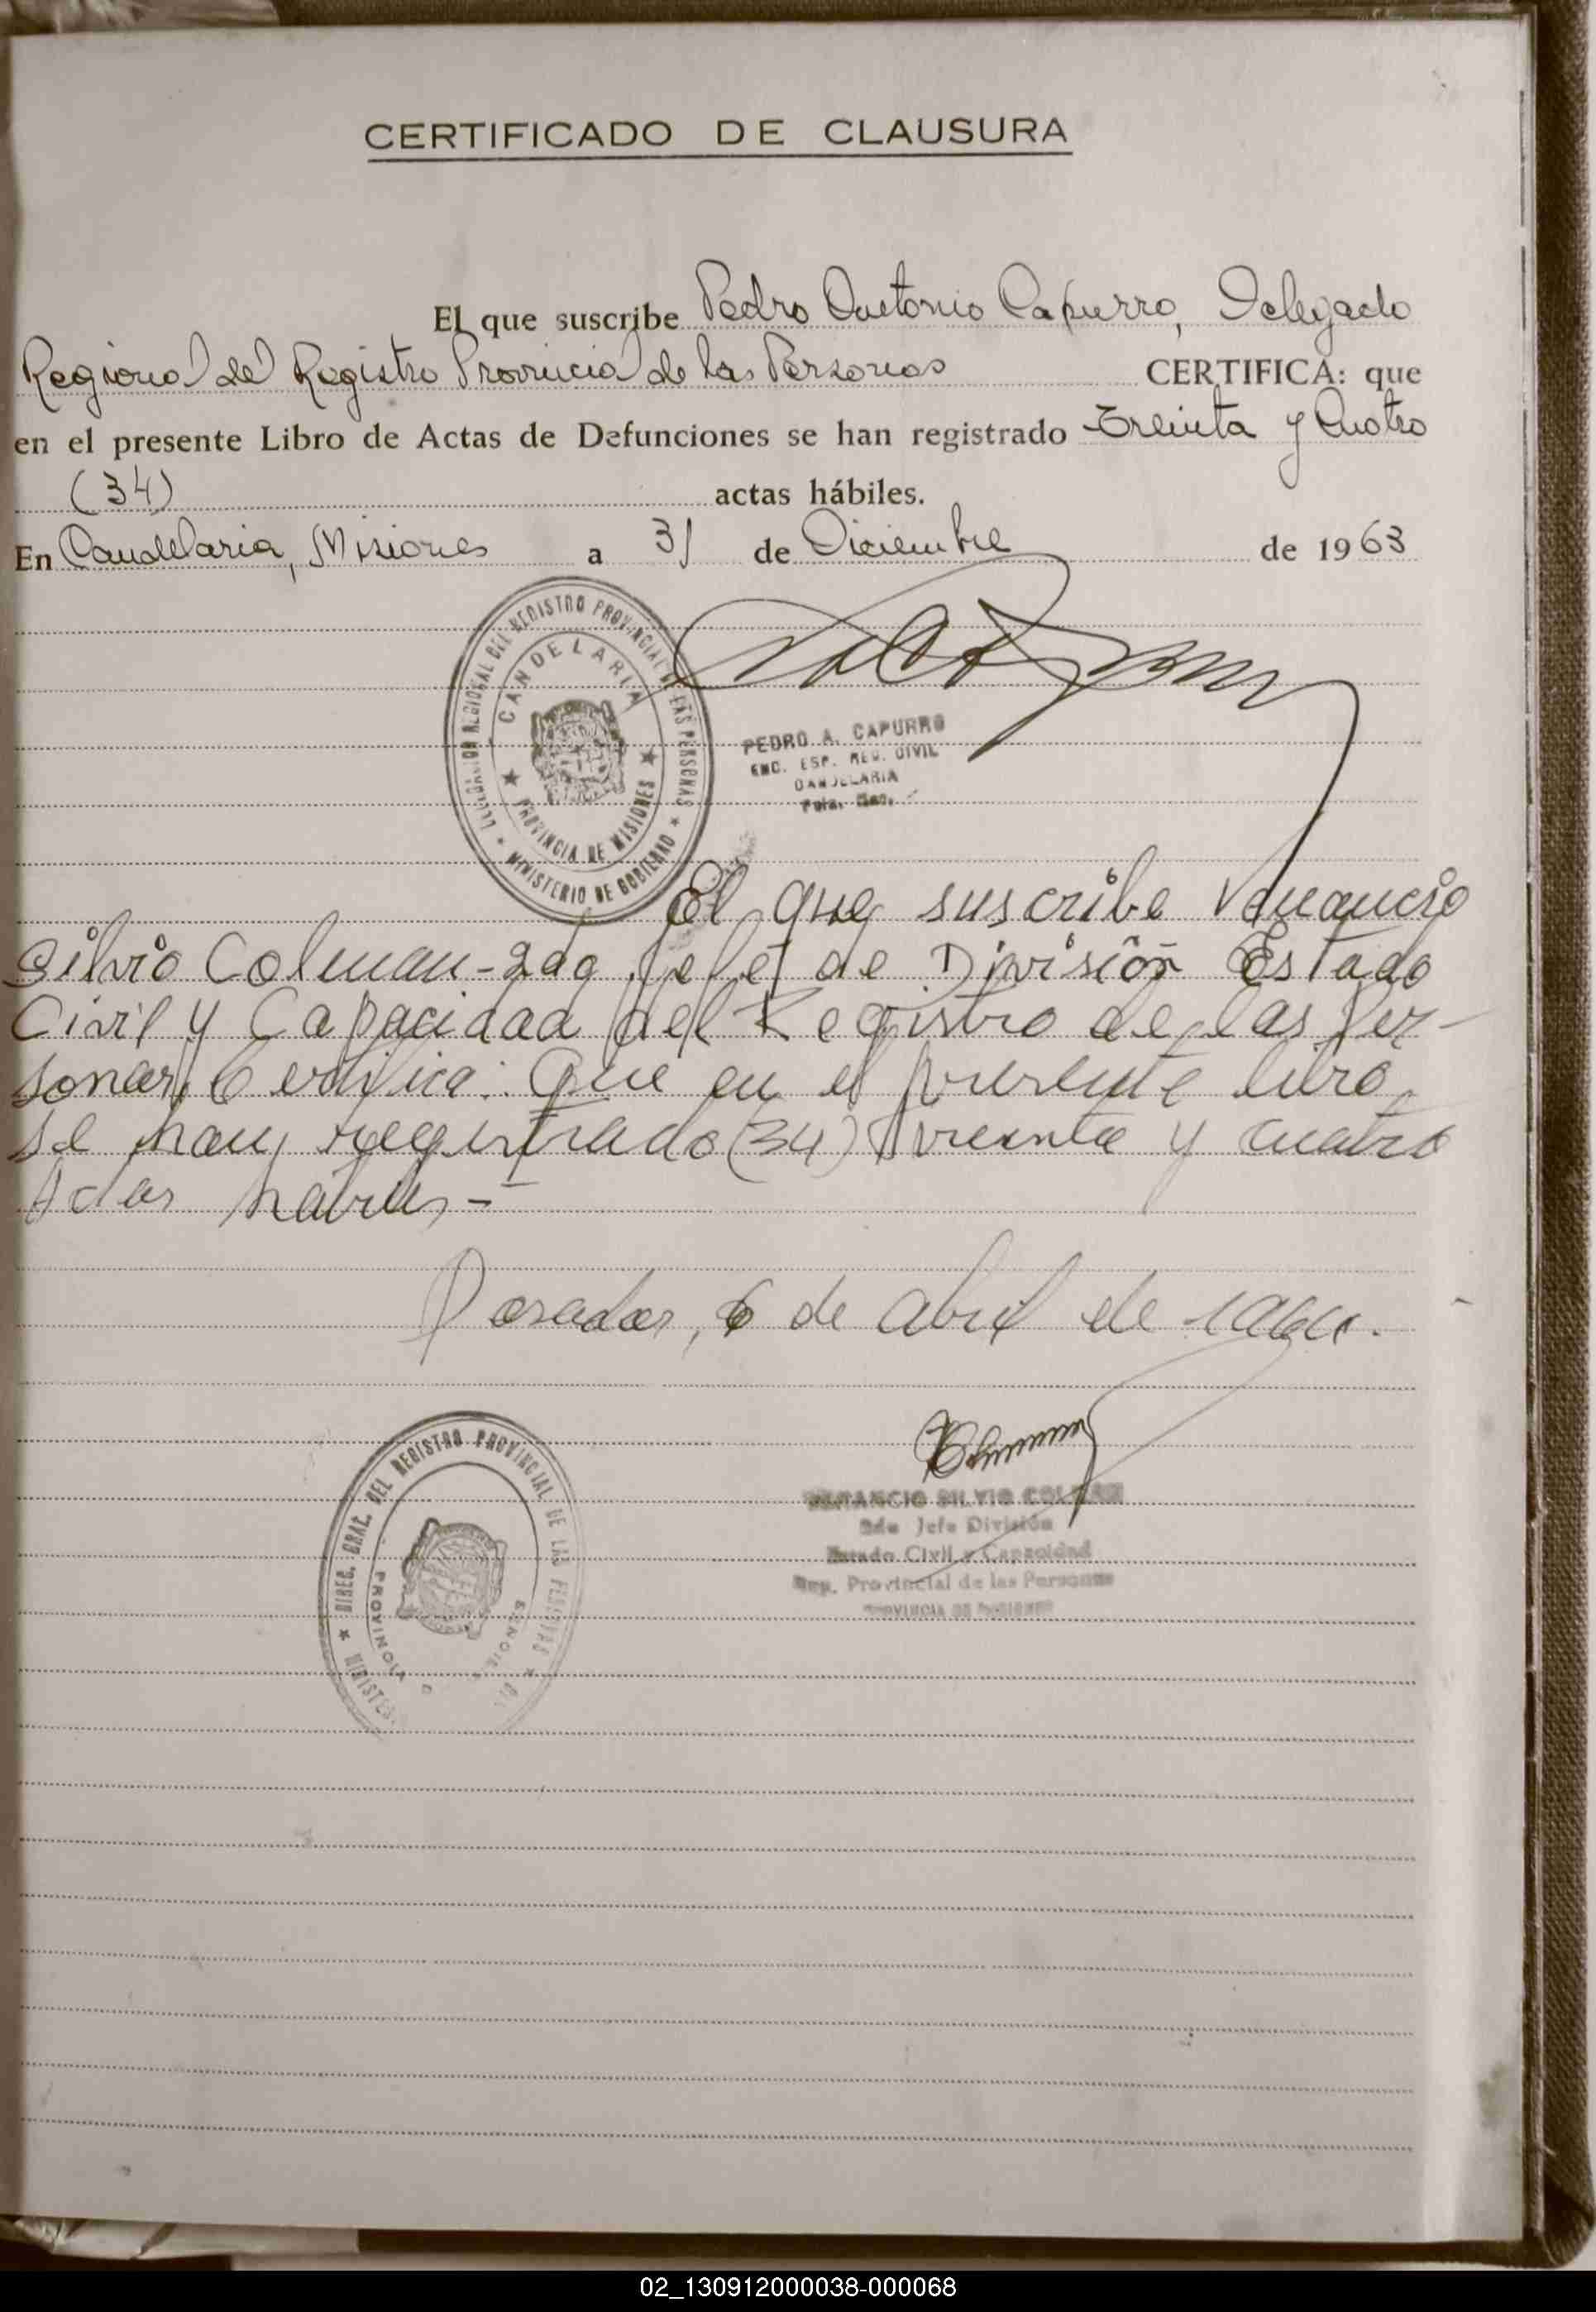 CERTIFICADO DE CLAUSURA
El que suscribe Pedro Antonio Capurro, Delegado
Regional del Registro Provincial de las Personas CERTIFICA: que
en el presente Libro de Actas de Defunciones se han registrado Treinta y Cuatro
(34) actas hábiles.
En Candelaria, Misiones a 31 de Diciembre de 1963
DELEGACION REGIONAL DEL REGISTRO PROVINCIAL DE LAS PERSONAS
★ MINISTERIO DE GOBIERNO ★
CANDELARIA
★ PROVINCIA DE MISIONES ★
PEDRO A. CAPURRO
ENC. ESP. REG. CIVIL
CANDELARIA
El que suscribe Venancio
Silvio Colman-2do Jefe de División Estado
Civil y Capacidad del Registro de las Per-
sonas, Certifica: Que en el presente libro
se han registrado (34) treinta y cuatro
Actas hábiles,-
Posadas, 6 de abril de 1964.
VENANCIO SILVIO COLMAN
2do Jefe División
Estado Civil y Capacidad
Reg. Provincial de las Personas
PROVINCIA DE MISIONES
★ DIREC. GRAL. DEL REGISTRO PROVINCIAL DE LAS PERSONAS ★
PROVINCIA
02_130912000038-000068